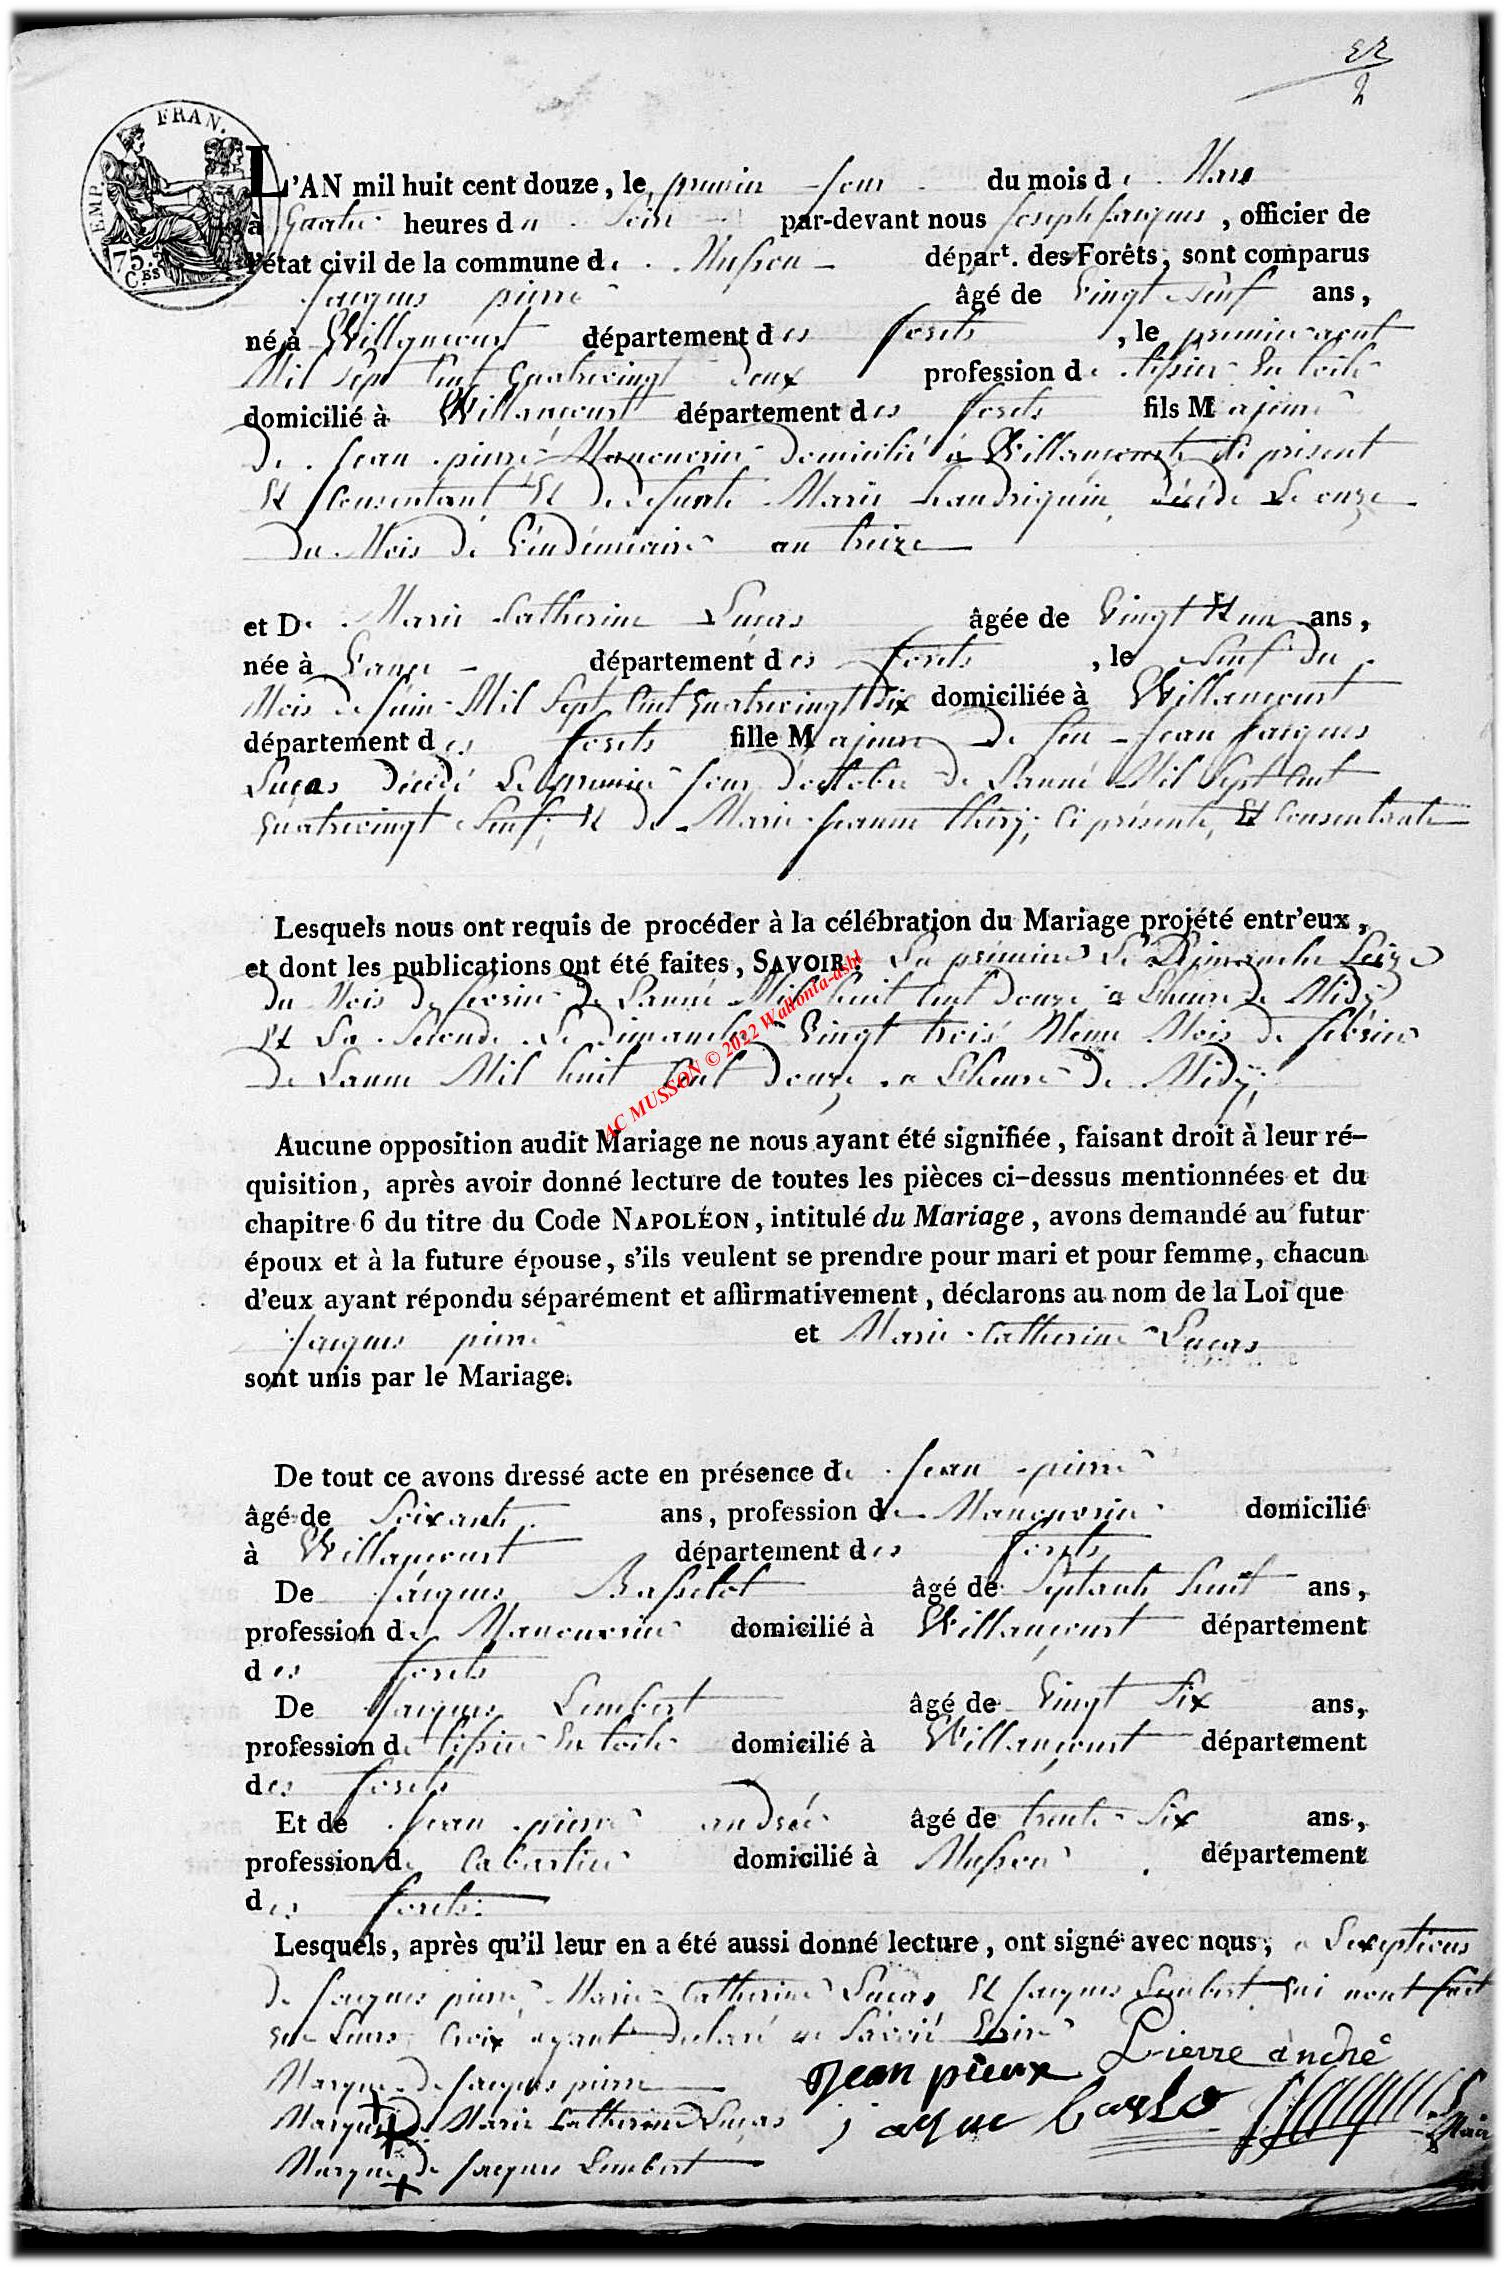 22
2
EMP. FRAN.
75 CES
L'AN mil huit cent douze, le premier jour du mois de Mars
à Quatre heures du Soir par-devant nous Joseph Jacques, officier de
l'état civil de la commune de Musson départ. des Forêts, sont comparus
Jacques pierre âgé de Vingt Neuf ans,
né à Willancourt département des forets, le premier aout
Mil Sept Cent Quatrevingt deux profession de tisseur En toile
domicilié à Willancourt département des forets fils Majeure
de Jean pierre Manouvrier domicilié a Willancourt ici présent
Et Consentant Et de defunte Marie handriquin, décédé Le onze
du Mois de Véndémiaire an treize
et De Marie Catherine Lucas âgée de Vingt Et un ans,
née à département des forets, le Neuf du
Mois de Juin Mil Sept Cent Quatrevingt dix domiciliée à Willancourt
département des forets fille Majeure de feu Jean Jacques
Lucas décédé Le premier jour d'octobre de Lanné Mil Sept Cent
Quatrevingt Neuf; Et de Marie Jeanne thiry; Ci présente, Et Consentante
Lesquels nous ont requis de procéder à la célébration du Mariage projété entr'eux,
et dont les publications ont été faites, SAVOIR: La première Le Dimanche Seize
du Mois de février de Lanné Mil huit Cent douze a Lheure de Midy
Et La Seconde Le Dimanche Vingt trois Meme Mois de février
de Lanne Mil huit Cent douze a Lheure de Midy;
AC MUSSON © 2022 Wallonia-asbl
Aucune opposition audit Mariage ne nous ayant été signifiée, faisant droit à leur ré-
quisition, après avoir donné lecture de toutes les pièces ci-dessus mentionnées et du
chapitre 6 du titre du Code NAPOLÉON, intitulé du Mariage, avons demandé au futur
époux et à la future épouse, s'ils veulent se prendre pour mari et pour femme, chacun
d'eux ayant répondu séparément et affirmativement, déclarons au nom de la Loi que
Jacques pierre et Marie Catherine Lucas
sont unis par le Mariage.
De tout ce avons dressé acte en présence de Jean pierre
âgé de Soixante ans, profession de Manouvrier domicilié
à Willancourt département des forets
De Jacques Basselot âgé de Septante huit ans,
profession de Manouvrier domicilié à Willancourt département
des forets
De Jacques Lambert âgé de Vingt Six ans,
profession de tisseur En toile domicilié à Willancourt département
des forets
Et de Jean pierre andrée âgé de trente Six ans,
profession de Cabartier domicilié à Musson département
des forets
Lesquels, après qu'il leur en a été aussi donné lecture, ont signé avec nous, a Lexeptions
de Jacques pierre, Marie Catherine Lucas, Et Jacques Lambert qui nont fait
que Leurs Croix ayant declaré ne Savoir Ecrire
Marque de Jacques pierre
Jean pieux Pierre andré
Marque de Marie Catherine Lucas
jaque
Marque de Jacques Lambert